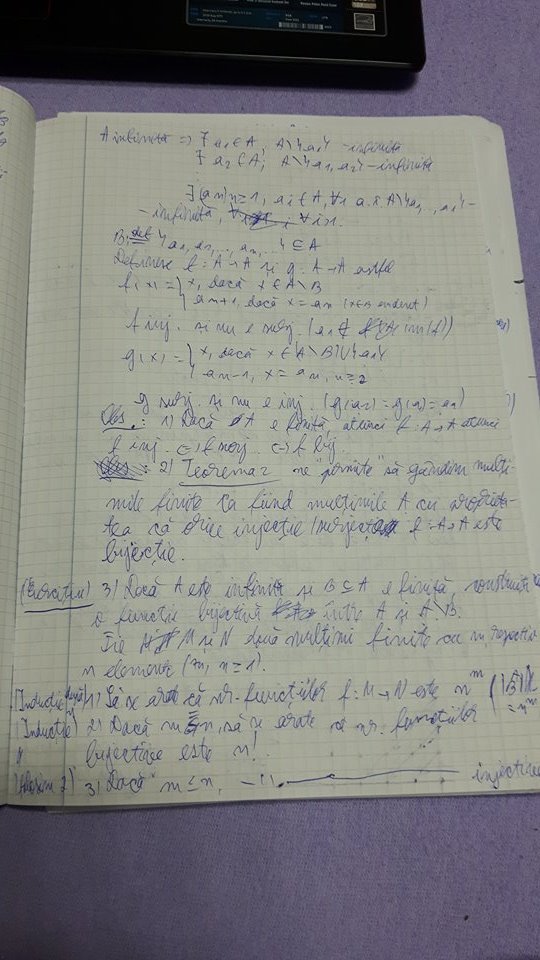 A infinită => ∃ a₁ ∈ A, A\{a₁} - infinită
∃ a₂ ∈ A, A\{a₁, a₂} - infinită
∃ (an) n≥1, ai ∈ A, ∀ i a.î. A\{a₁, ..., ai} -
- infinită, ∀ i≥1.
B def {a₁, a₂, ..., an, ...} ⊆ A
Definim f: A→A și g: A→A astfel
f(x) = { x, dacă x ∈ A\B
an+1, dacă x = an (x∈B evident)
f inj. și nu e surj. (a₁ ∉ Im(f))
g(x) = { x, dacă x ∈ (A\B)∪{a₁}
an-1, x = an, n≥2
g surj. și nu e inj. (g(a₂) = g(a₁) = a₁)
Obs.: 1) Dacă A e finită, atunci f: A→A atunci
f inj. <=> f surj. <=> f bij.
: 2) Teorema 2 ne "permite" să gândim mulți-
mile finite ca fiind mulțimile A cu proprieta-
tea că orice injecție/surjecție f: A→A este
bijecție.
(Exercițiu) 3) Dacă A este infinită și B ⊆ A e finită, construiți
o funcție bijectivă între A și A\B.
Fie M și N două mulțimi finite cu m, respectiv
n elemente (m, n ≥ 1).
(Inducție după m) 1) Să se arate că nr. funcțiilor f: M→N este n^m
(Inducție) 2) Dacă m = n, să se arate că nr. funcțiilor
" bijective este n!
3) Dacă m ≤ n, —"— injective